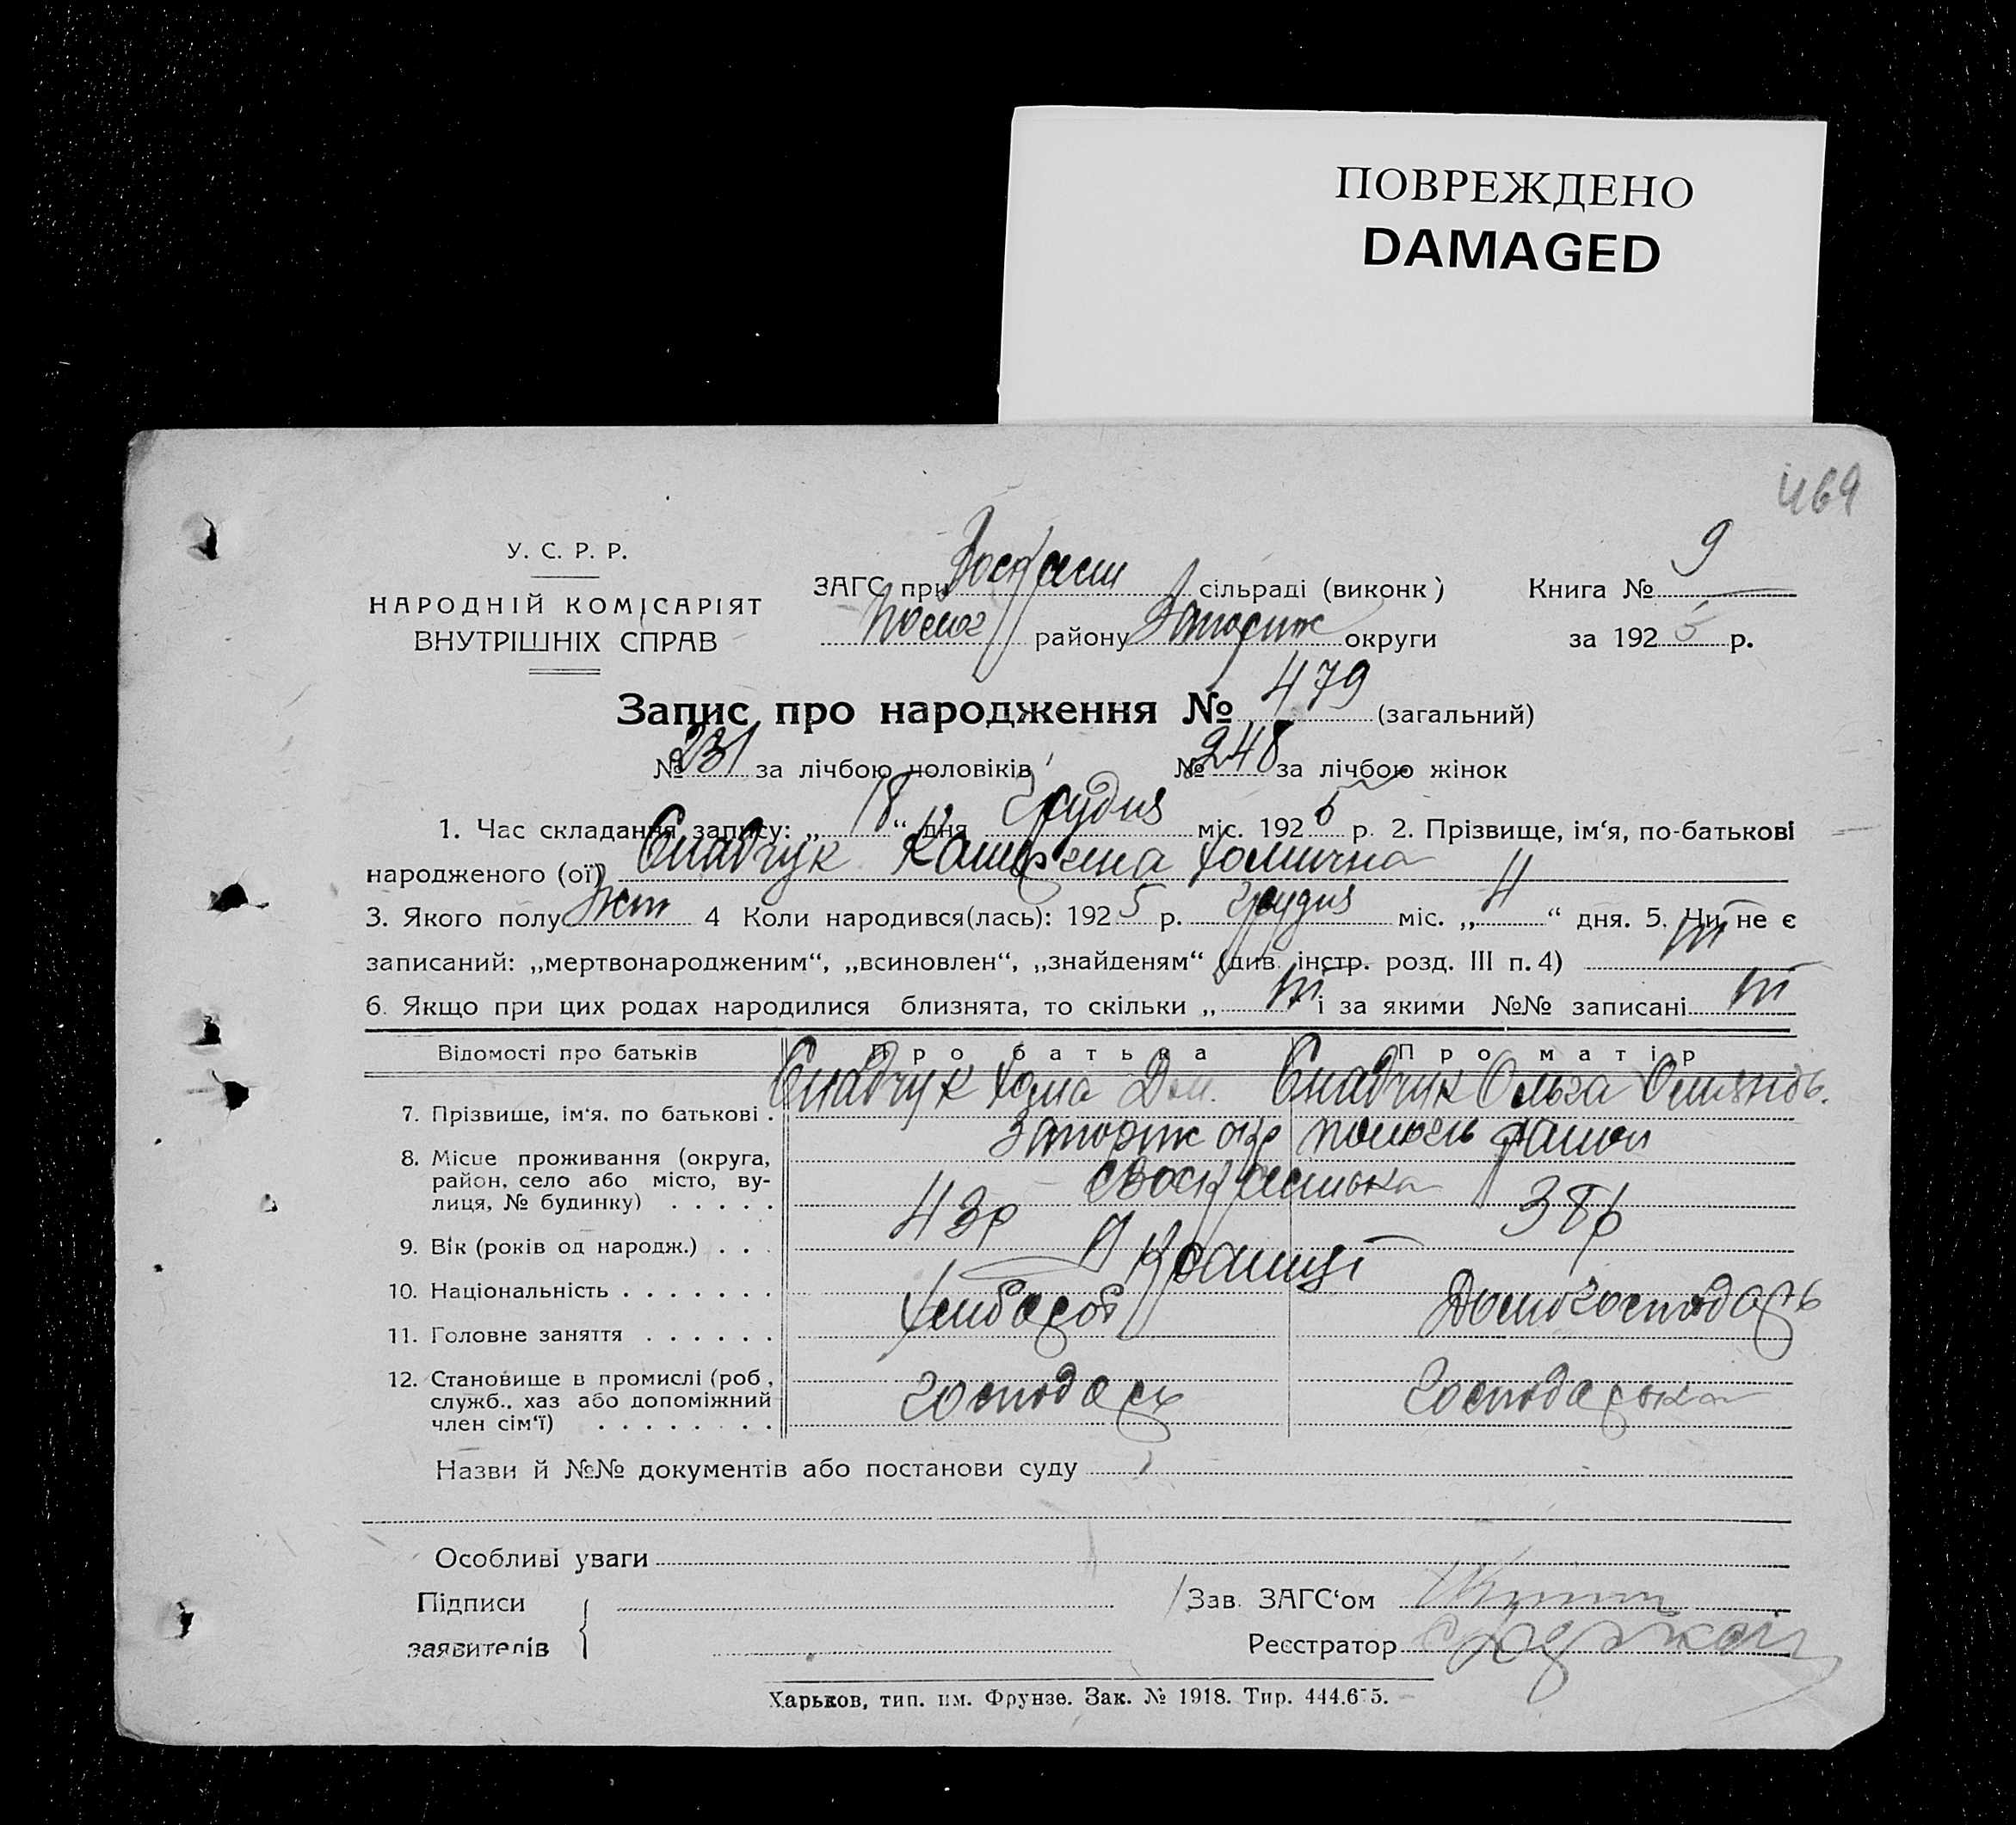 ПОВРЕЖДЕНО
DAMAGED
469
У. С. Р. Р.
НАРОДНІЙ КОМІСАРІЯТ
ВНУТРІШНІХ СПРАВ
ЗАГС при сільраді (виконк)
району Запоріж округи
Книга № 9
за 1925 р.
Запис про народження № 479 (загальний)
№ 231 за лічбою чоловіків № 248 за лічбою жінок
1. Час складання запису: „ 18 “ дня Грудня міс. 1925 р. 2. Прізвище, ім‘я, по-батькові
народженого (ої) Хомична
3. Якого полу жін 4 Коли народився(лась): 1925 р. Грудня міс. „ 4 “ дня. 5. Чи не є
записаний: „мертвонародженим“, „всиновлен“, „знайденям“ (див. інстр. розд. III п. 4) ні
6. Якщо при цих родах народилися близнята, то скільки „ ні і за якими №№ записані ні
Відомості про батьків Про батька Про матір
7. Прізвище, ім‘я, по батькові . Хома Дем. Ольга
8. Місце проживання (округа, район, село або місто, вулиця, № будинку) . . . . . Запоріж окр район
9. Вік (років од народж.) . . . 43р 38р
10. Національність . . . . . . . Українці
11. Головне заняття . . . . . . Хлібороб Домогосподарь
12. Становище в промислі (роб, служб.. хаз або допоміжний член сім‘ї) . . . . . . . . господарь господарька
Назви й №№ документів або постанови суду
Особливі уваги
Підписи
заявителів
Зав. ЗАГС‘ом
Реєстратор
Харьков, тип. им. Фрунзе. Зак. № 1918. Тир. 444.675.